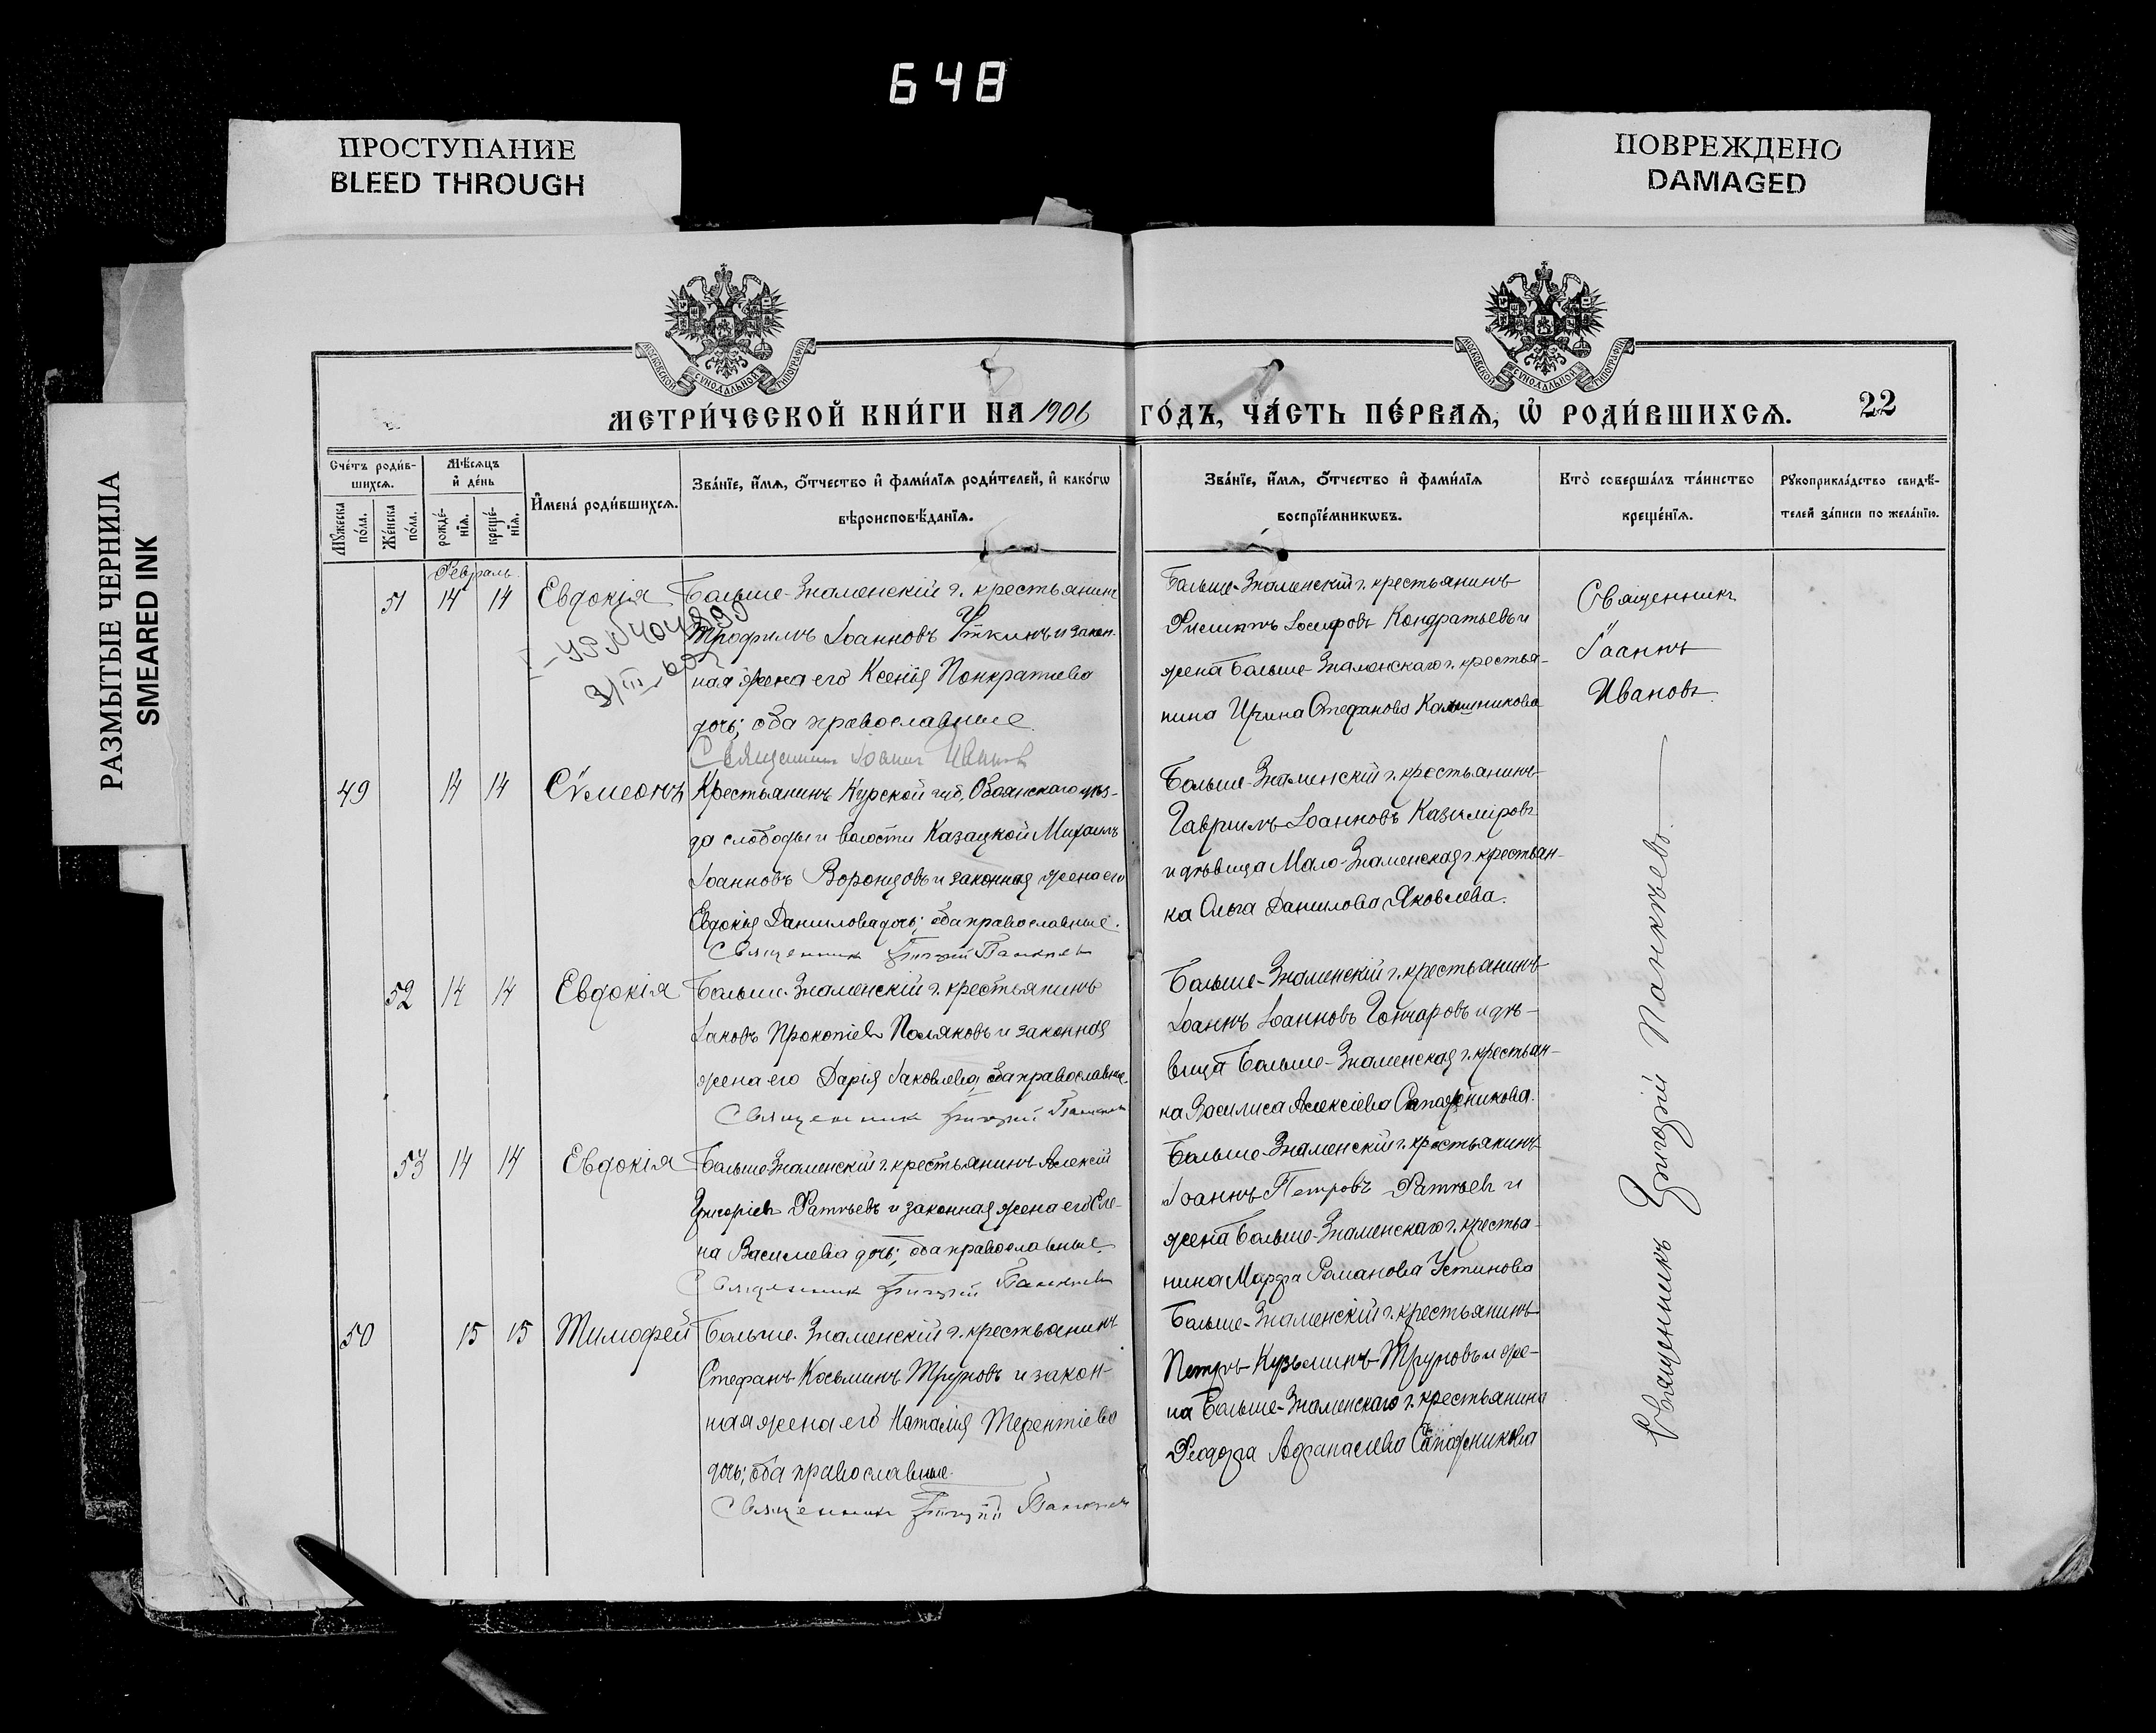 648
ПРОСТУПАНИЕ
BLEED THROUGH
ПОВРЕЖДЕНО
DAMAGED
РАЗМЫТЫЕ ЧЕРНИЛА
SMEARED INK
МОСКОВСКОЙ СУНОДАЛЬНОЙ ТИПОГРАФІИ
МОСКОВСКОЙ СУНОДАЛЬНОЙ ТИПОГРАФІИ
МЕТРИ́ЧЕСКОЙ КНИ́ГИ НА 1906 ГО́ДЪ, ЧА́СТЬ ПЕ́РВАѦ, Ѡ҆ РОДИ́ВШИХСѦ. 22
Сче́тъ роди́в-
шихсѧ.
Мѣ́сѧцъ
и҆ де́нь
Мꙋ́жеска
по́ла.
Же́нска
по́ла.
рожде́-
нїѧ.
креще́-
нїѧ.
И҆мена̀ роди́вшихсѧ.
Зва́нїе, и҆́мѧ, ѻ҆́тчество и҆ фами́лїѧ роди́телей, и҆ како́гѡ
вѣроисповѣ́данїѧ.
Зва́нїе, и҆́мѧ, ѻ҆́тчество и҆ фами́лїѧ
воспрїе́мникѡвъ.
Кто̀ соверша́лъ та́инство
креще́нїѧ.
Рꙋкоприкла́дство свидѣ́-
телей за́писи по жела́нїю.
Февраль
51 14 14 Евдокія
Больше-Знаменскій г. крестьянинъ
Трофимъ Іоанновъ Уткинъ и закон-
ная жена его Ксенія Понкратиева
дочь; оба православные
Священникъ Іоаннъ Ивановъ
Больше-Знаменскій г. крестьянинъ
Іосифовъ Кондратьевъ и
жена Больше-Знаменскаго г. крестья-
нина Ирина Стефанова Калашникова
Священникъ
Іоаннъ
Ивановъ
49 14 14 Сѵмеонъ
Крестьянинъ Курской губ., Обоянскаго уѣз-
да слободы и волости Казацкой Михаилъ
Іоанновъ Воронцовъ и законная жена его
Евдокія Данилова дочь; оба православные.
Священникъ Григорій Панкѣевъ
Больше-Знаменскій г. крестьянинъ
Гавриилъ Іоанновъ Казиміровъ
и дѣвица Мало-Знаменская г. крестьян-
ка Ольга Данилова Яковлева.
52 14 14 Евдокія
Больше-Знаменскій г. крестьянинъ
Іаковъ Прокопіевъ Поляковъ и законная
жена его Дарія Іаковлева; оба православные.
Священникъ Григорій Панкѣевъ
Больше-Знаменскій г. крестьянинъ
Іоаннъ Іоанновъ Гончаровъ и дѣ-
вица Больше-Знаменская г. крестьян-
ка Василиса Алексіева Сапожникова.
53 14 14 Евдокія
Больше Знаменскій г. крестьянинъ Алексій
Григоріевъ Фатѣевъ и законная жена его Еле-
на Василиева дочь; оба православные.
Священникъ Григорій Панкѣевъ
Больше-Знаменскій г. крестьянинъ
Іоаннъ Петровъ Фатѣевъ и
жена Больше-Знаменскаго г. крестья-
нина Марфа Романова Устинова
50 15 15 Тимофей
Больше-Знаменскій г. крестьянинъ
Стефанъ Косьминъ Труновъ и закон-
ная жена его Наталія Терентіева
дочь; оба православные.
Священникъ Григорій Панкѣевъ
Больше-Знаменскій г. крестьянинъ
Петръ Кузьминъ Труновъ и же-
на Больше-Знаменскаго г. крестьянина
Феодора Афанасиева Сапожникова
Священникъ Григорій Панкѣевъ